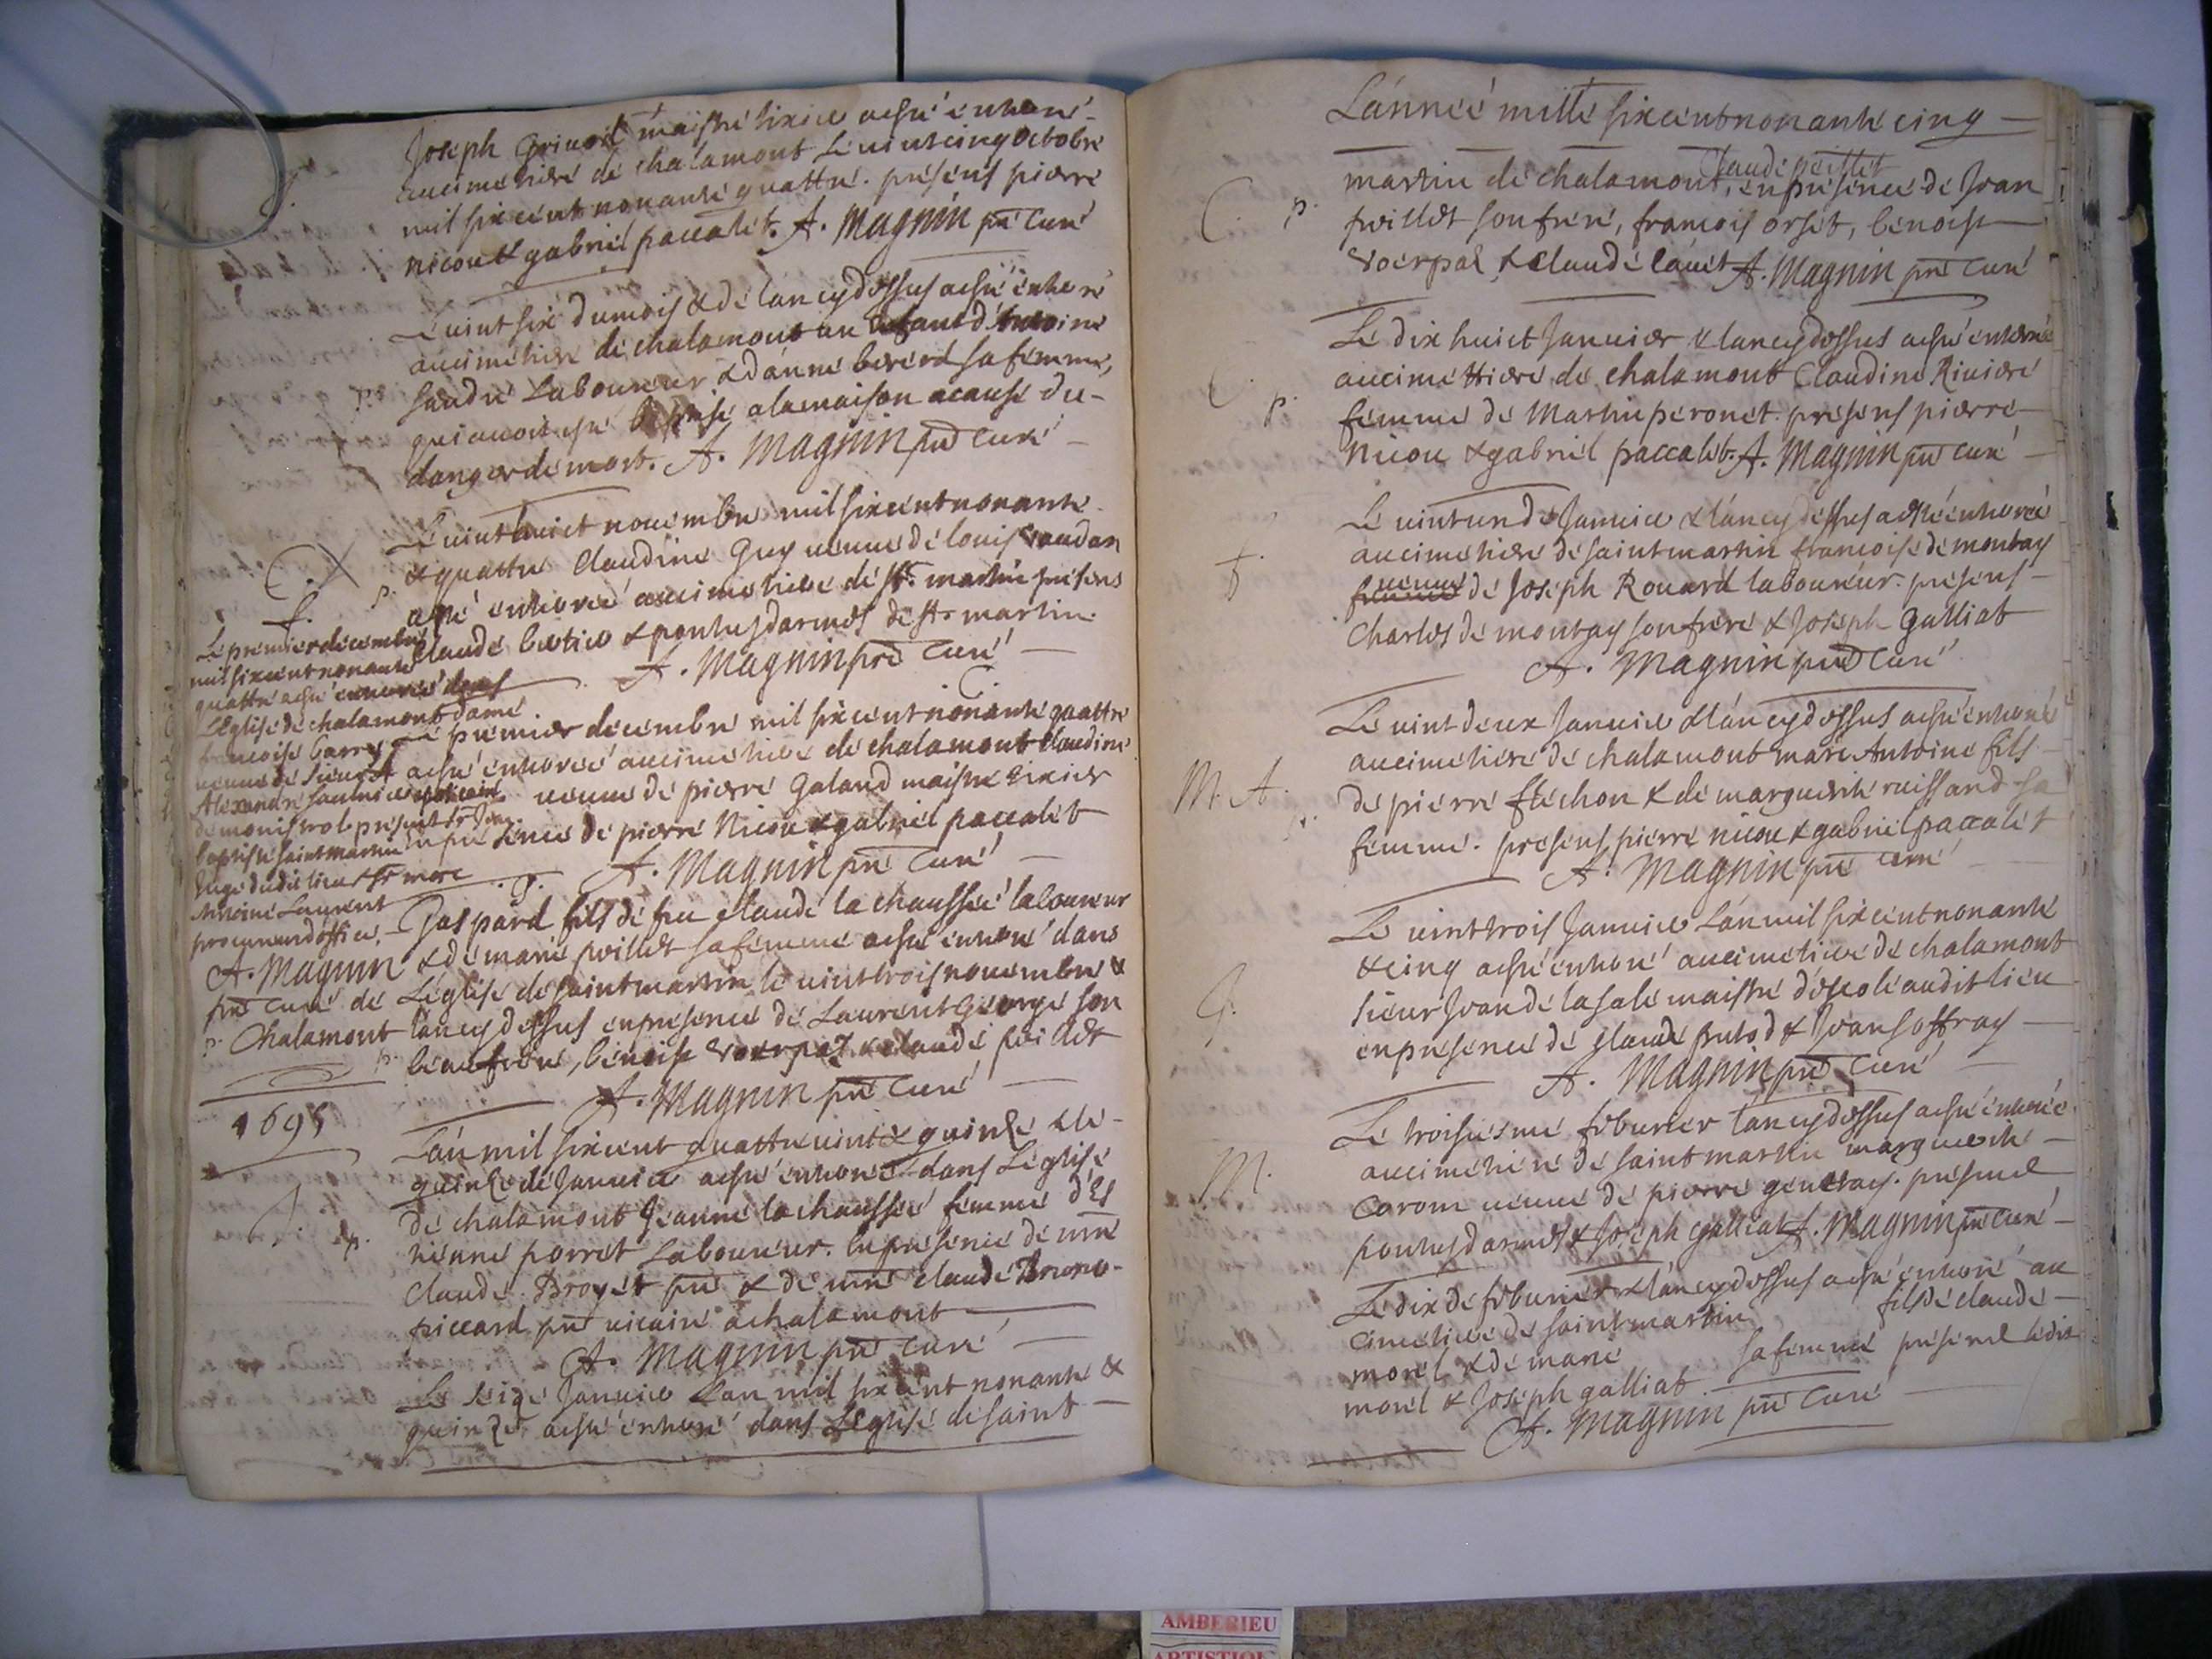 Joseph maistre tixier a esté enterré
au cimetiere de chalamont le vint cinq octobre
mil six cent nonante quattre. presens pierre
nicou & gabriel paccalet. A. Magnin pre Curé
Le vint six du mois & de l'an cy dessus a esté enterré
au cimetiere de chalamont un enfant d'Antoine
laboureur & d'anne bererd sa femme,
qui avoit esté baptisé a la maison a cause du
danger de mort. A. Magnin pre Curé
Le vint huict novembre mil six cent nonante
& quattre Claudine Guy veuve de louis vaudan
a esté enterreé au cimetiere de st. martin presens
Claude & ponthus darmes de st martin.
A. Magnin pre Curé
C.
p.
f.
Le premier decembre
mil six cent nonante
quattre a esté enterreé dans
L'Eglise de chalamont dame
francoise barrey
veuve de sieur
Alexandre saulnier
de monistrol present sr Jean
baptiste saint martin
Juge dudit lieu & sr marc
Antoine Laurent
procureur d'office.
A. Magnin
pre Curé de
Chalamont
Le premier decembre mil six cent nonante quattre
a esté enterreé au cimetiere de chalamont Claudine
veuve de pierre Galand maistre tixier
en presence de pierre Nicou & gabriel paccalet
A. Magnin pre Curé
g.
Gaspard fils de feu claude la chausseé laboureur
& de marie peillet sa femme a esté enterré dans
L'église de saint martin le vint trois novembre &
l'an cy dessus en presence de Laurent George son
beau frere, benoist voerpaz & claude peillet
A. Magnin pre Curé
1695
L'an mil six cent quattre vint & quinze & le
quinze de Janvier a esté enterreé dans L'église
de chalamont Jeanne la chausseé femme d'Es
tienne porret Laboureur. En presence de mre
Claude Broyet pre & de mre claude Bruno
piccard pre vicaire a chalamont
A. Magnin pre Curé
J.
p.
Le seize Janvier L'an mil six cent nonante &
quinze a esté enterré dans L'Eglise de saint
L'anneé mille six cent nonante cinq
Claude peillet
martin de chalamont, en presence de Jean
peillet son frere, francois orset, benoist
voerpaz & Claude A. Magnin pre Curé
C. p.
Le dix huict Janvier & l'an cy dessus a esté enterreé
au cimettiere de chalamont Claudine Riviere
femme de Martin peronet. presens pierre
Nicou & gabriel paccalet. A. Magnin pre Curé
C. p.
Le vint un de Janvier & l'an cy dessus a esté enterreé
au cimetiere de saint martin francoise de montay
veuve
femme de Joseph Rouard laboureur. presens
Charles de montay son frere & Joseph Galliat
A. Magnin pre Curé
f.
Le vint deux Janvier & l'an cy dessus a esté enterré
au cimetiere de chalamont marc Antoine fils
de pierre flechon & de marguerite ruissand sa
femme. presens pierre nicou & gabriel paccalet
A. Magnin pre curé
M. A.
Le vint trois Janvier L'an mil six cent nonante
& cinq a esté enterré au cimetiere de chalamont
sieur Jean de la sale maistre d'escole audit lieu
en presence de claude & Jean soffray
A. Magnin pre Curé
Le troisiesme feburier l'an cy dessus a esté enterreé
au cimetiere de saint martin marguerite
Carom veuve de pierre genetay. presens
ponthus darmes & Joseph galliat A. Magnin pre Curé
M.
Le dix de feburier & l'an cy dessus a esté enterré au
cimetiere de saint martin fils de claude
morel & de marie sa femme presens ledit
morel & Joseph galliat.
A. Magnin pre Curé
AMBERIEU